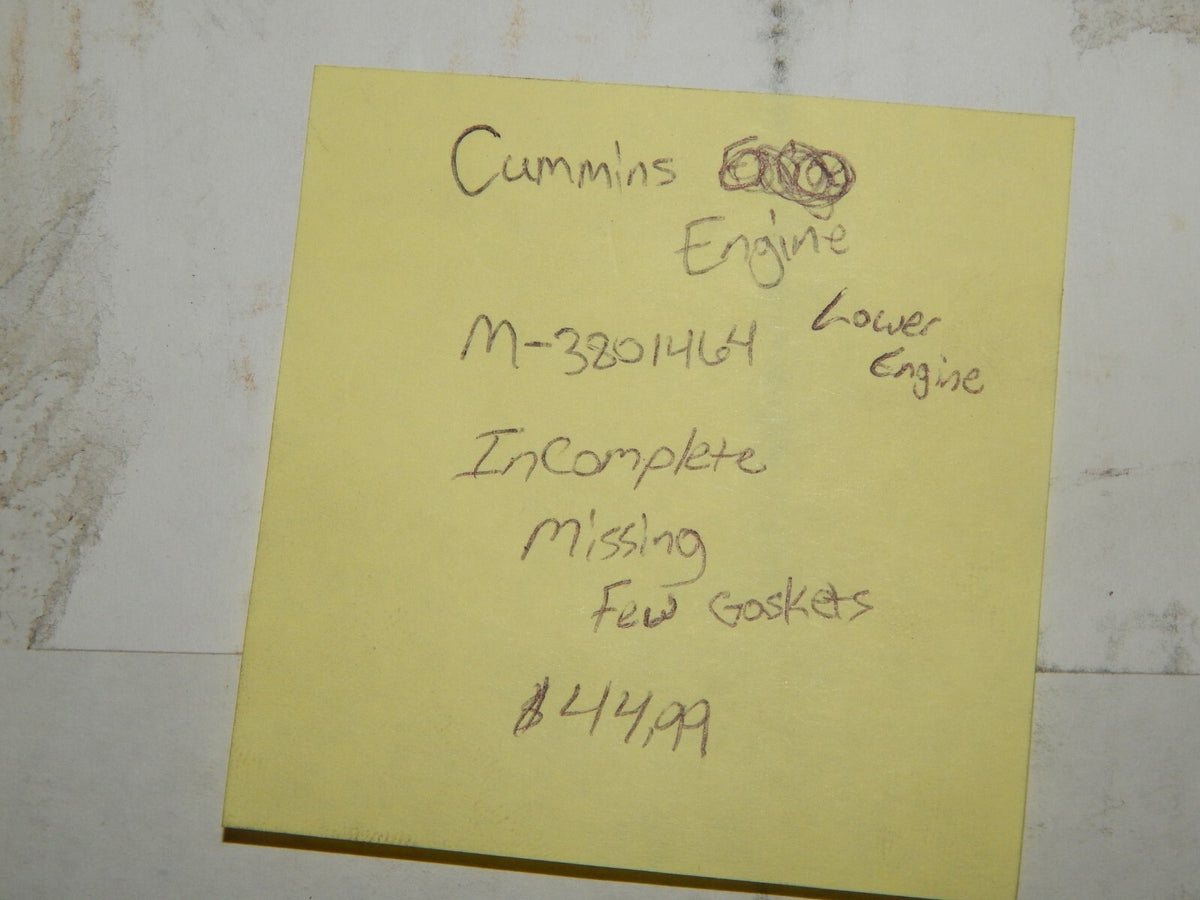 Cummins
Engine
M-3801464
Lower
Engine
InComplete
Missing
Few Gaskets
$44,99